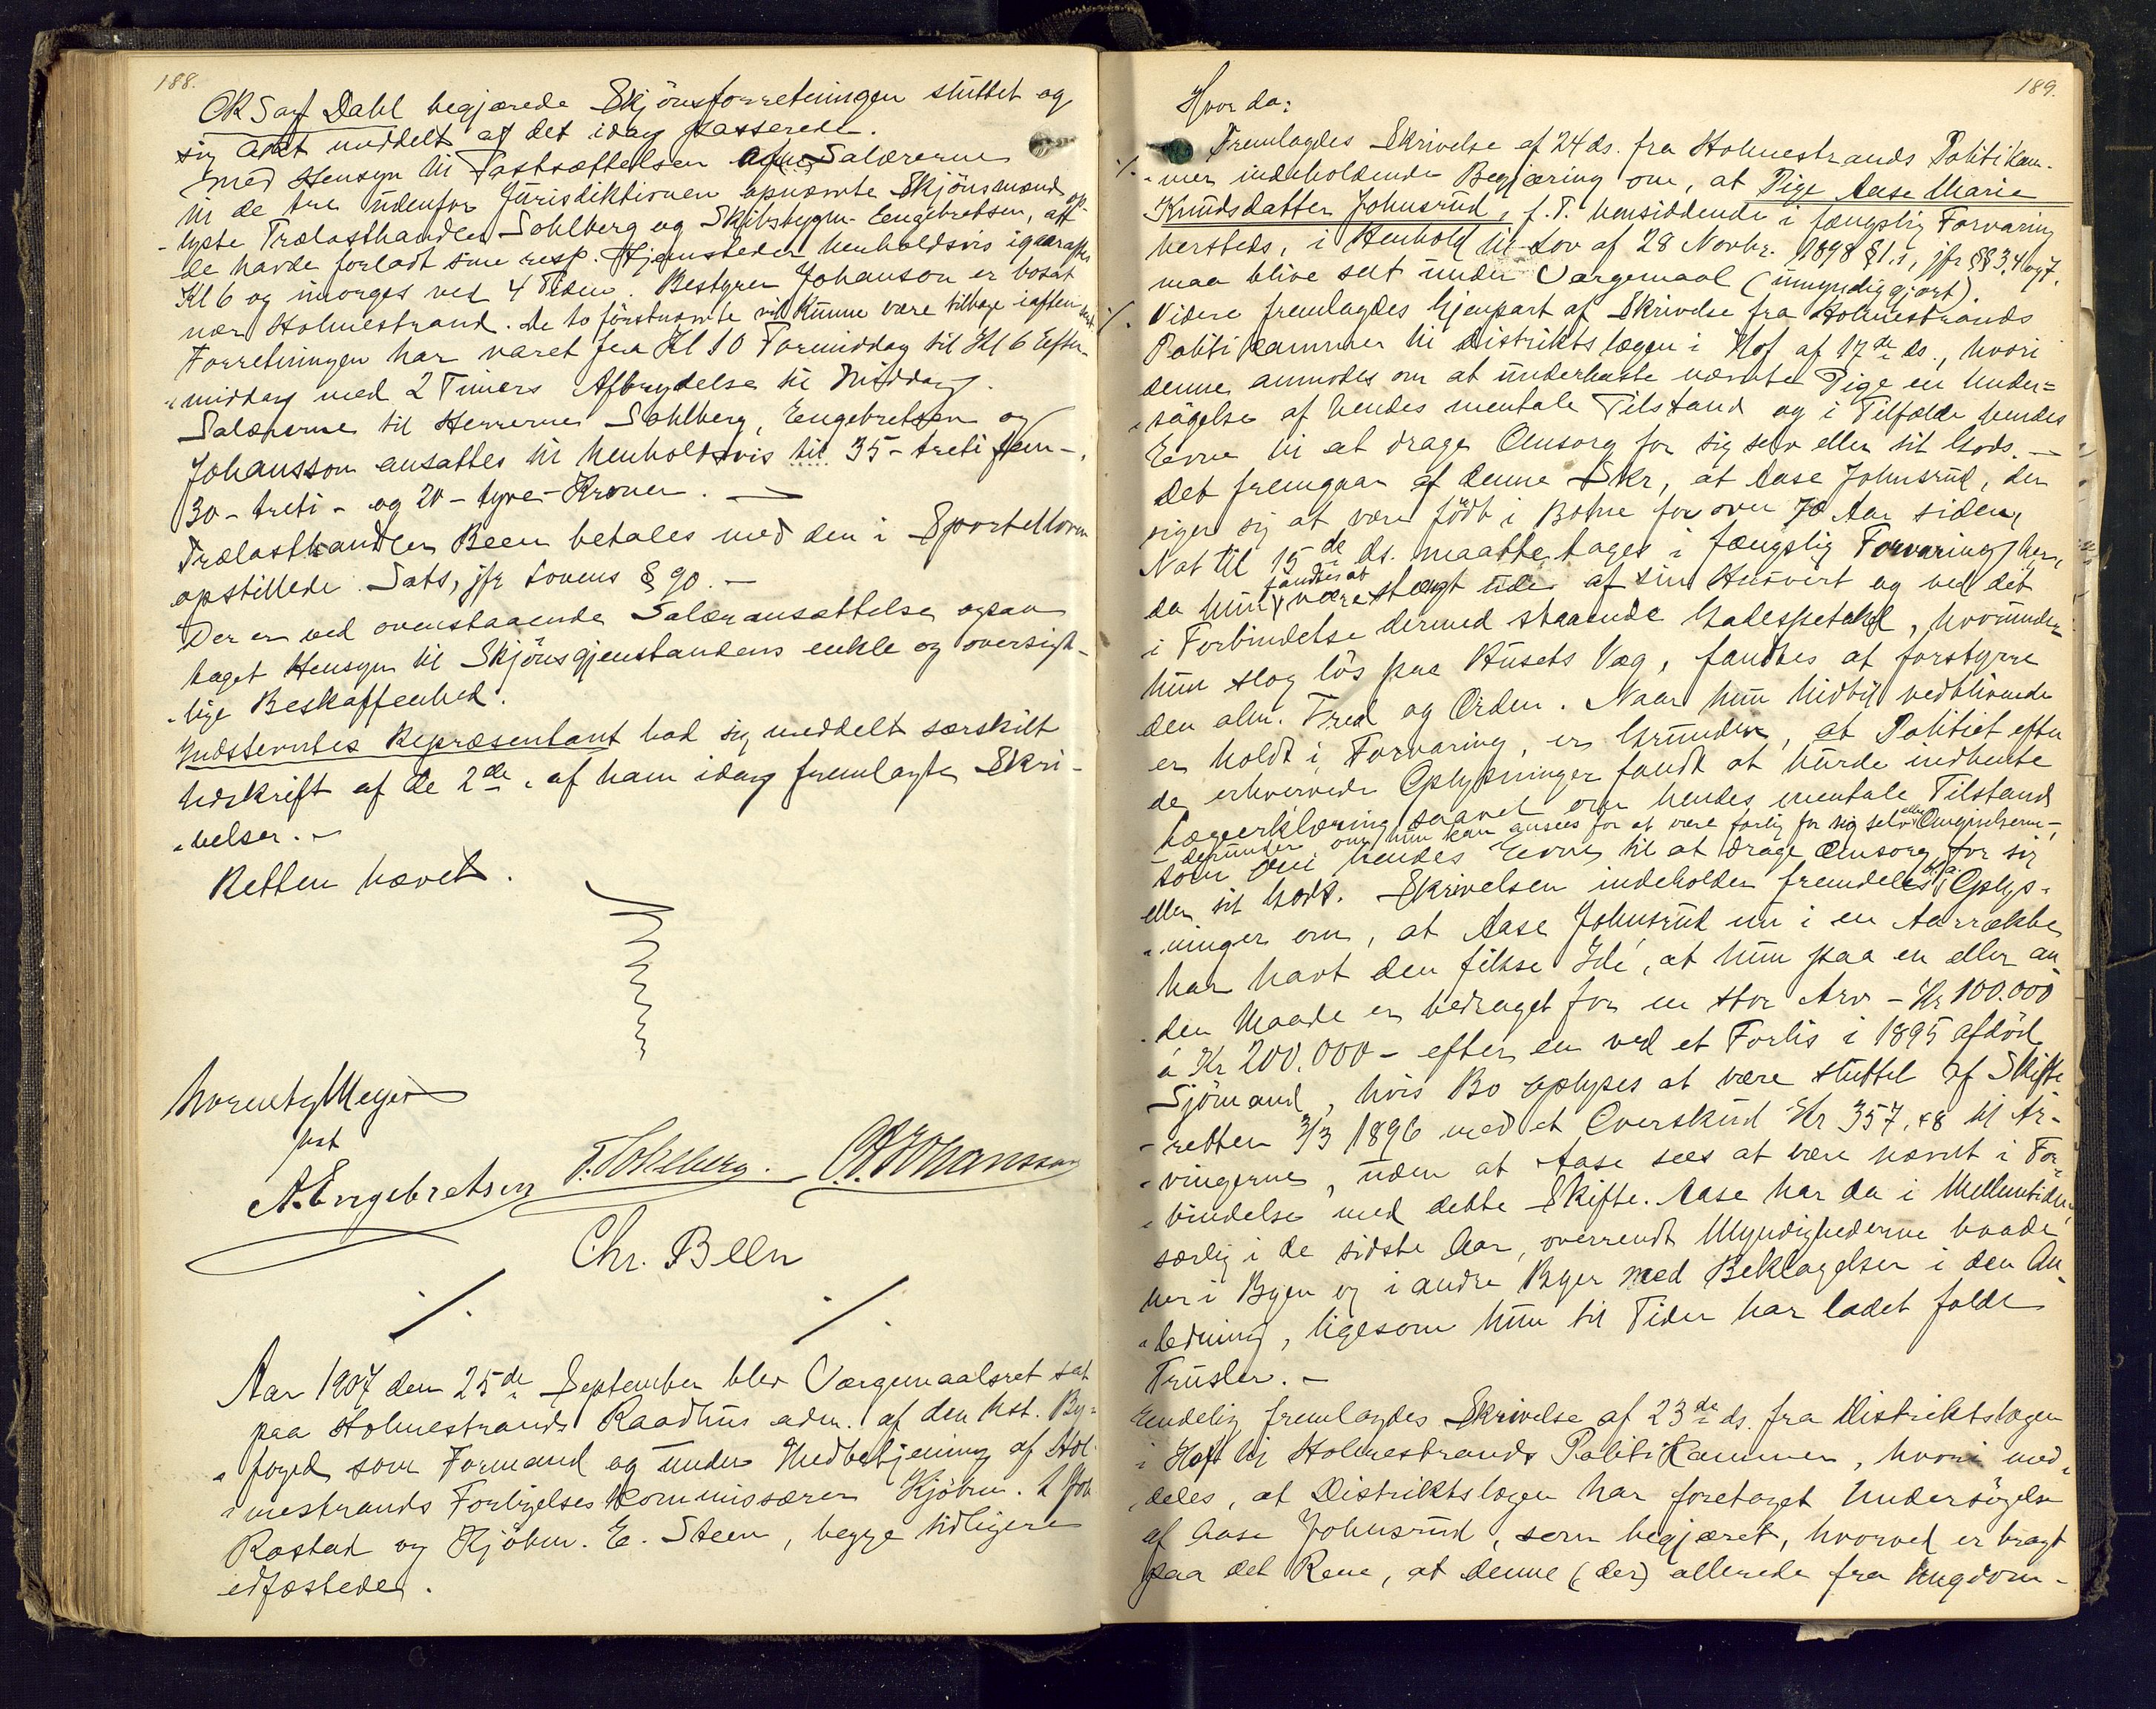 188.
OR Sagf Dahl begjærede Skjönsforretningen sluttet og
sig Akt meddelt af det idag passerede.
Med Hensyn til Fastsættelsen af Salærerne
til de tre udenfor Jurisdiktionen opnævnte Skjönsmænd op-
lyste Trælasthandler Sohlberg og Skibsbygger Engebretsen, at
de havde forladt sine resp. Hjemsteder henholdsvis igaaraftes
Kl 6 og imorges ved 4 Tiden. Bestyrer Johanson er bosat
nær Holmestrand. De to förstnævnte vil kunne være tilbage iaften
Forretningen har varet fra Kl 10 Formiddag til Kl 6 Efter-
middag med 2 Timers Afbrydelse til Middag.
Salærerne til Herrerne Sohlberg, Engebretsen og
Johansson ansattes til henholdsvis til 35 - treti fem -,
30 - treti - og 20 - tyve - Kroner. —
Trælasthandler Been betales med den i Sportelloven
opstillede Sats, jfr Lovens § 90. —
Der er ved ovenstaaende Salæransættelse ogsaa
taget Hensyn til Skjönsgjenstandens enkle og oversigt-
lige Beskaffenhed.
Indstevntes Repræsentant bad sig meddelt særskilt
Udskrift af de 2de af ham idag fremlagte Skri-
velser. —
Retten hævet.
Meyer
A. Engebretsen T. Sohlberg. Johansson
Chr. Been
Aar 1907 den 25de September blevVærgemaalsret sat
paa Holmestrands Raadhus adm. af den kst. By-
foged som Formand og under Medbetjening af Hol-
mestrands Forligelseskommissærer Kjöbm.
Rastad og Kjöbm. E. Steen, begge tidligere
edfæstede.
189.
Hvor da:
Fremlagdes Skrivelse af 24 ds. fra Holmestrands Politikam-
mer indeholdende Begjæring om, at Pige Aase Marie
Knudsdatter Johnsrud, f. T. hensiddende i fængslig Forvaring
hersteds, i Henhold til Lov af 28 Novbr. 1898 § 1.1, jfr §§ 3, 4 og 7.
maa blive sat under Værgemaal (umyndiggjort).
Videre fremlagdes Gjenpart af Skrivelse fra Holmestrands
Politikammer til Distriktslægen i Hof af 17de ds., hvori
denne anmodes om at underkaste nævnte Pige en Under-
søgelse af hendes mentale Tilstand og i Tilfælde hendes
Evne til at drage Omsorg for sig selv eller sit Gods. —
Det fremgaar af denne Skr, at Aase Johnsrud, der
siger sig at være födt i Botne for over 70 Aar siden,
Nat til 15de ds. maatte tages i fængslig Forvaring her,
da hun fandtes at være stængt ude af sin Husvert og ved det
i Forbindelse dermed staaende Gadespetakel, hvorunder
hun slog lös paa Husets Væg, fandtes at forstyrre
den alm. Fred og Orden. Naar hun hidtil vedblivende
er holdt i Forvaring, er Grunden, at Politiet efter
de erhvervede Oplysninger fandt at burde indhente
Lægeerklæring saavel om hendes mentale Tilstand
- derunder om hun kan ansees for at være farlig for sig selv eller Omgivelserne -,
som om hendes Evne til at drage Omsorg for sig
eller sit Gods. Skrivelsen indeholder fremdeles bl.a. Oplys-
ninger om, at Aase Johnsrud nu i en Aarrække
har havt den fikse Idé, at hun paa en eller an-
den Maade er bedraget for en stor Arv - Kr 100.000
à Kr 200.000 - efter en ved et Forlis i 1895 afdöd
Sjömand, hvis Bo oplyses at være sluttet af Skifte-
retten 3/3 1896 med et Overskud Kr 357,48 til Ar-
vingerne, uden at Aase sees at være nævnt i For-
bindelse med dette Skifte. Aase har da i Mellemtiden,
særlig i de sidste Aar, overrendt Myndighederne baade
her i Byen og i andre Byer med Beklagelser i den An-
ledning, ligesom hun til Tider har ladet falde
Trusler. —
Endelig fremlagdes Skrivelse af 23de ds. fra Distriktslægen
i Hof til Holmestrands Politikammer, hvori med-
deles, at Distriktslægen har foretaget Undersøgelse
af Aase Johnsrud, som begjæret, hvorved er bragt
paa det Rene, at denne (der) allerede fra Ungdom-